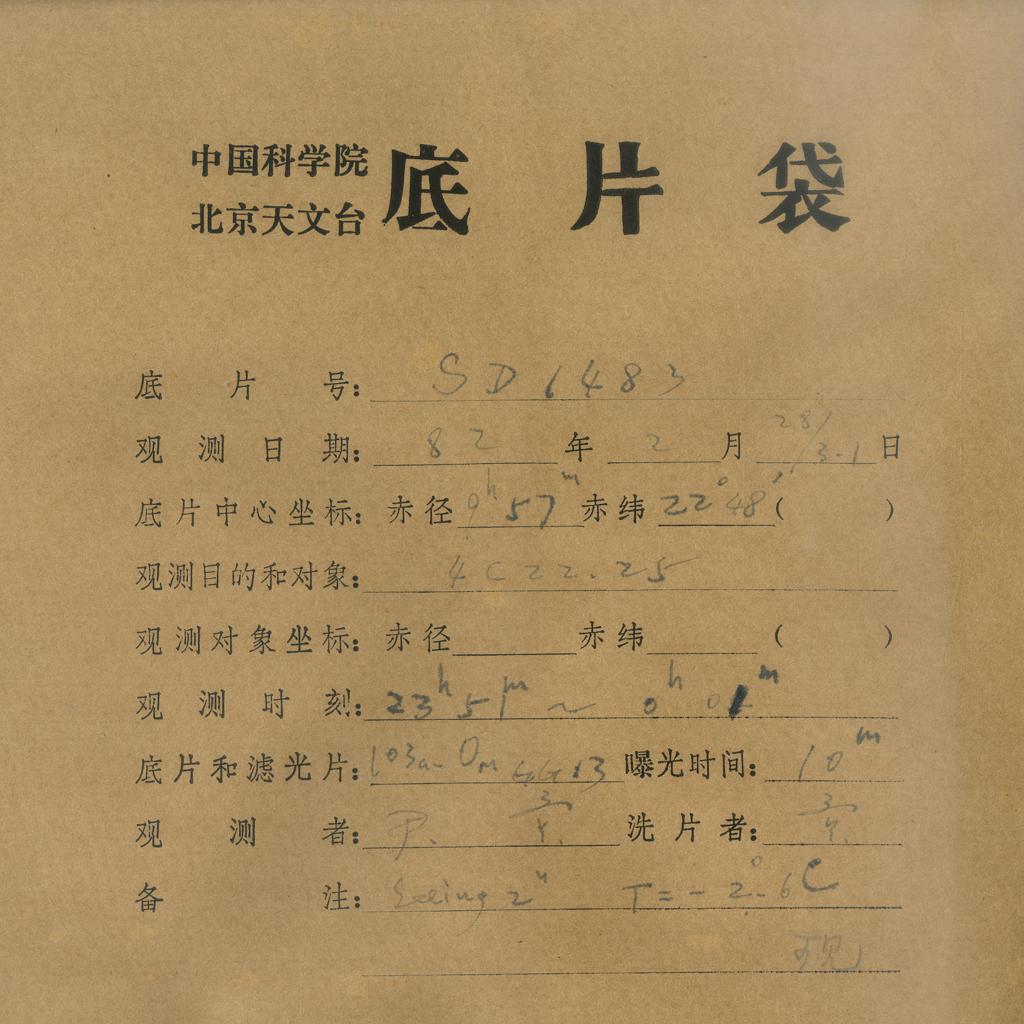 中国科学院
北京天文台
底片袋
底片号: SD1483
观测日期: 82 年 2 月 28/3.1 日
底片中心坐标: 赤径 9h 57m 赤纬 22°48′ ( )
观测目的和对象: 4C22.25
观测对象坐标: 赤径 赤纬 ( )
观测时刻: 23h 51m ~ 0h 01m
底片和滤光片: 103a-O GG13 曝光时间: 10m
观测者: 洗片者:
备注: Seeing 2" T=-2°.6C